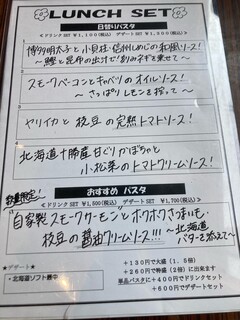 LUNCH SET
日替りパスタ
<ドリンクSET ¥1,100(税込) デザートSET ¥1,300(税込)>
博多明太子と小貝柱・信州しめじの和風ソース!
~鰹と昆布の出汁で!刻みネギを乗せて~
スモークベーコンとキャベツのオイルソース!
~さっぱりレモンを搾って~
ヤリイカと枝豆の完熟トマトソース!
北海道十勝産甘ぐりかぼちゃと
小松菜のトマトクリームソース!
数量限定!
おすすめ パスタ
<ドリンクSET ¥1,500(税込) デザートSET ¥1,700(税込)>
"自家製スモークサーモン"とホクホクさつまいも・
枝豆の醤油クリームソース!!!
~北海道
バターを添えて~
★デザート★
・北海道ソフト最中
+130円で大盛(1.5倍)
+260円で特盛(2倍)に出来ます
単品パスタに+400円でドリンクセット
+600円でデザートセット